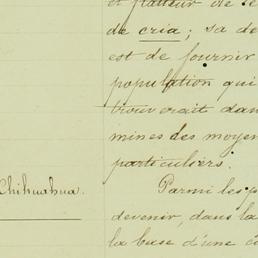 et flatteur de se
de cria; sa de
est de fournir
population qui
trouverait dans
mines des moyen
particuliers.
Chihuahua.
Parmi les p
devenir, dans la
la base d'une c